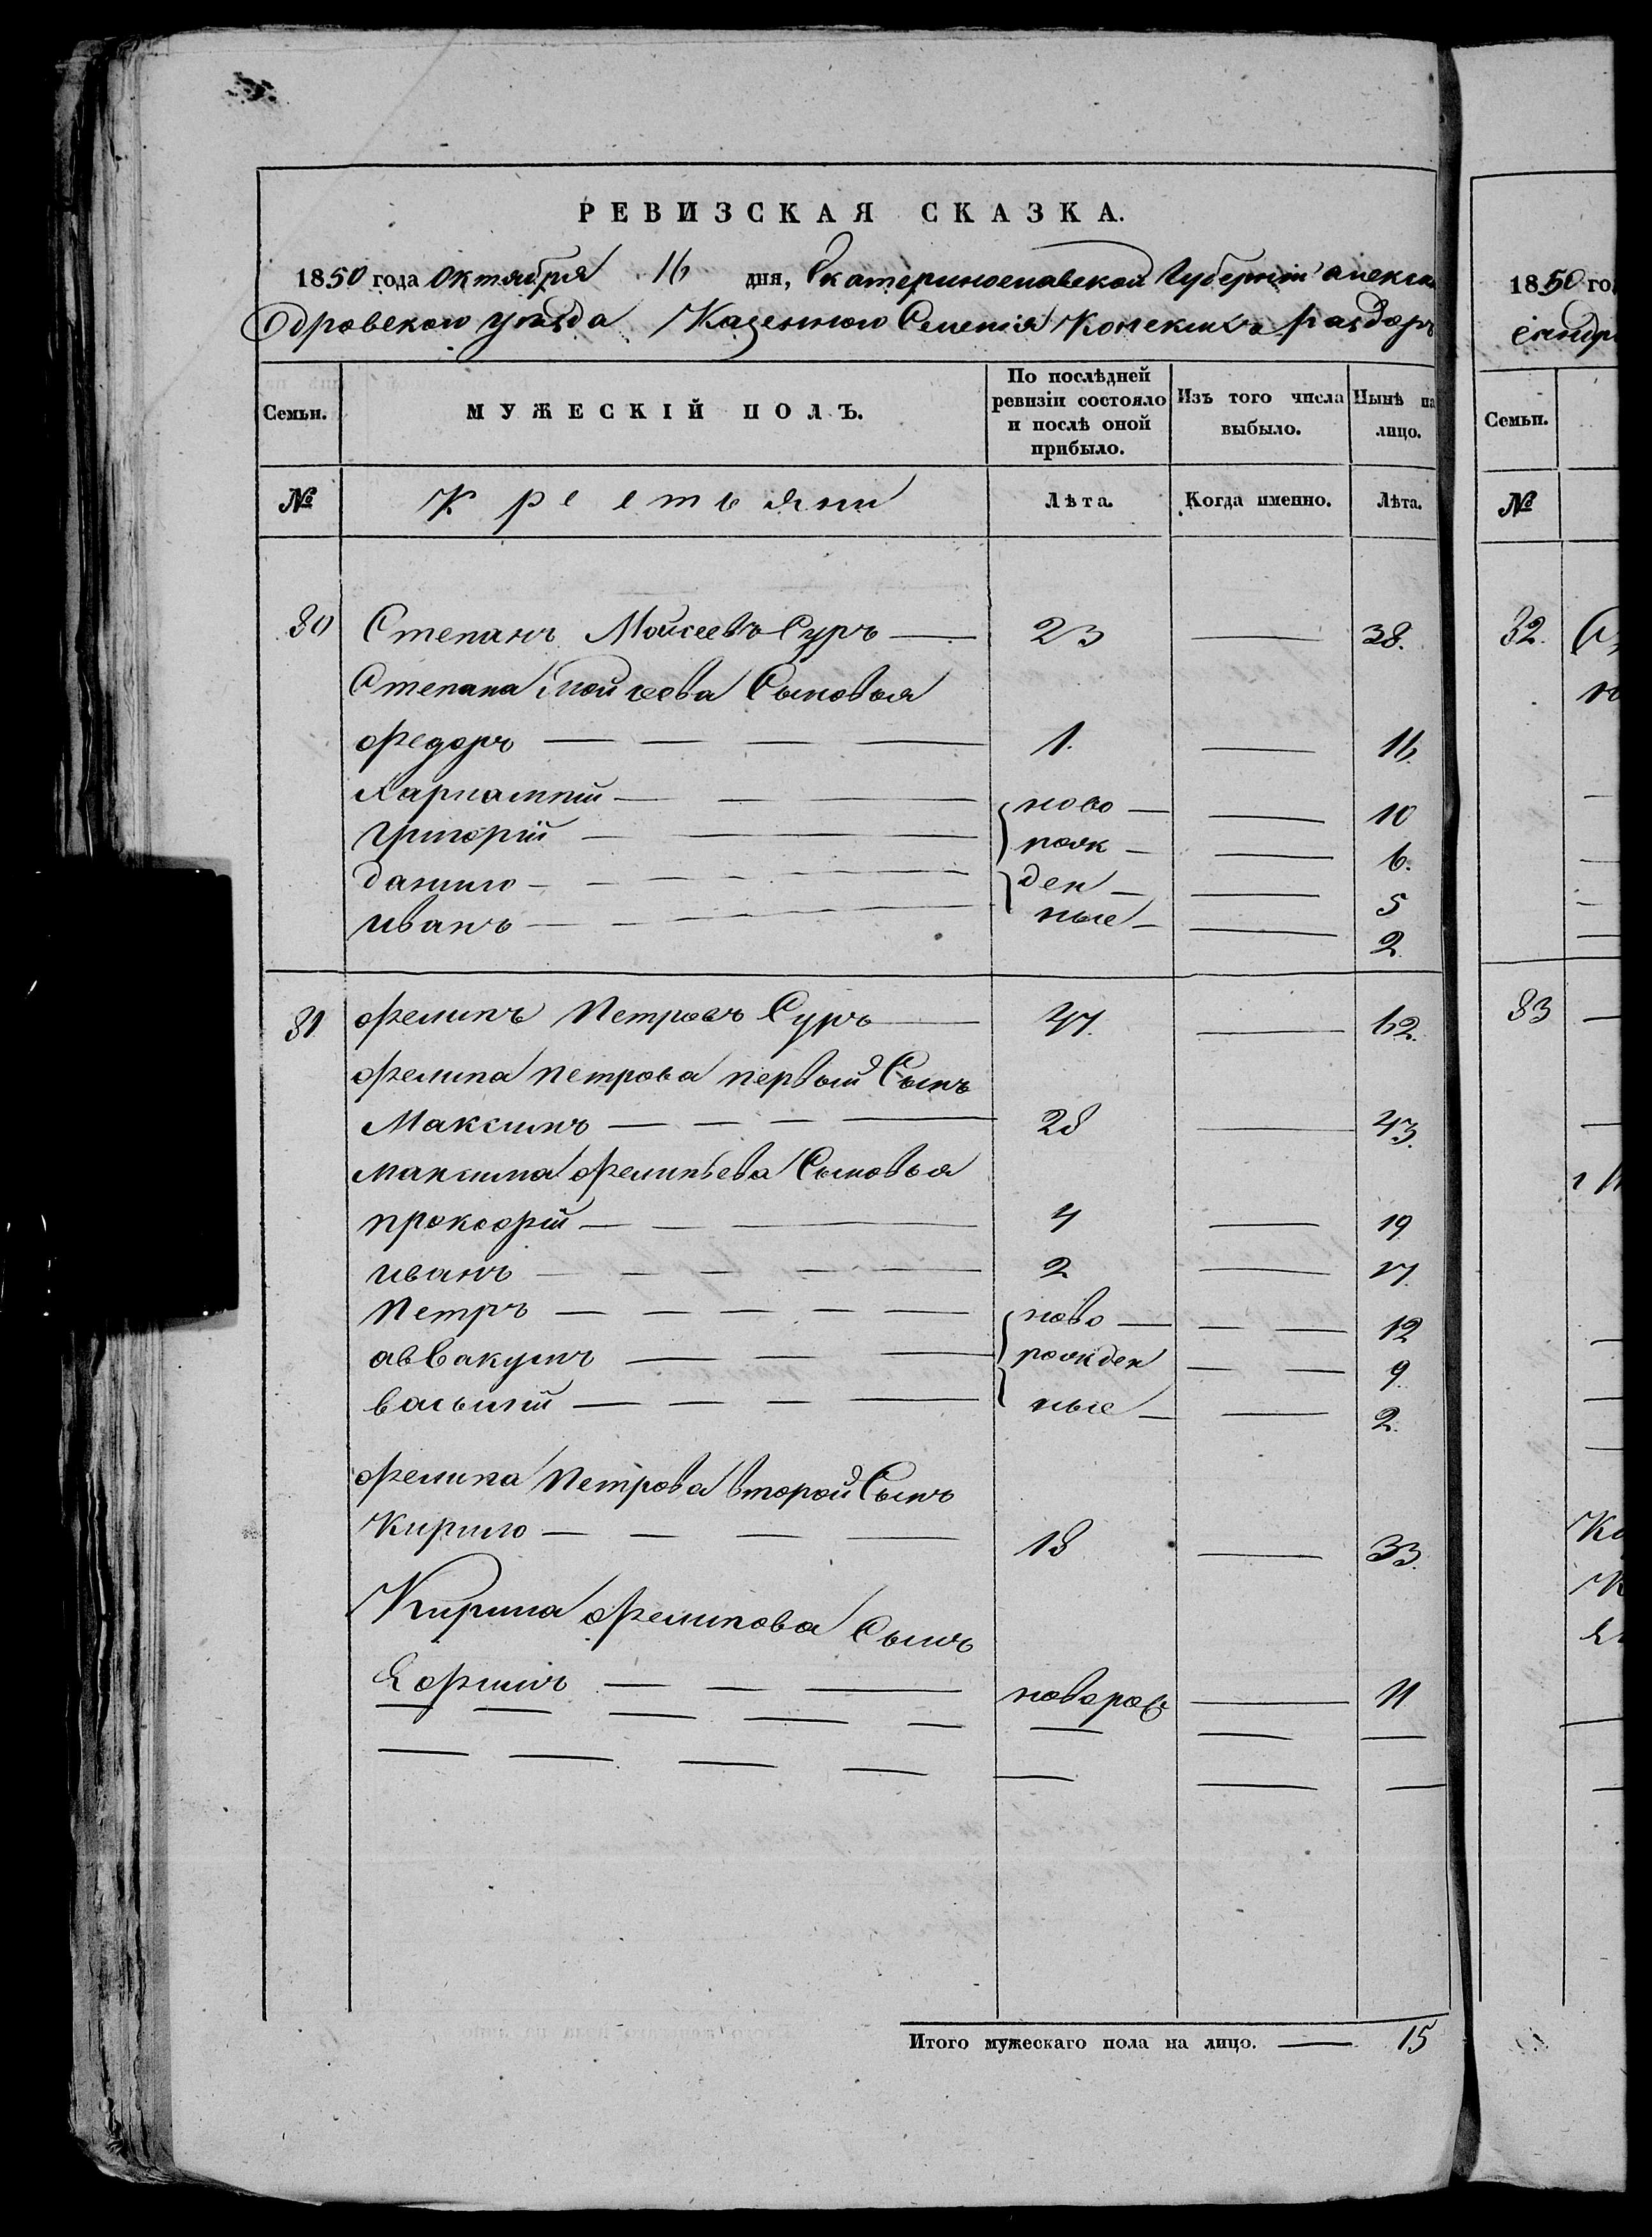 РЕВИЗСКАЯ СКАЗКА.
1850 года Октября 16 дня, Екатеринославской Губернии Алекса
ндровского уезда Казенного Селения Конских раздоръ
Семьи. МУЖЕСКІЙ ПОЛЪ. По послѣдней ревизіи состояло и послѣ оной прибыло. Изъ того числа выбыло. Нынѣ на лицо.
№ Крестьяни Лѣта. Когда именно. Лѣта.
80 Степанъ Моисеевъ Суръ — 23 — 38.
Степана Моисеева Сыновья
Федоръ — 1. — 16.
Харлампий — ново — — 10
Григорий — рож — — 6.
данило — ден — — 5
иванъ — ные — — 2.
81 Филипъ Петровъ Суръ — 47. — 62.
Филипа Петрова первый Сынъ
Максимъ — 28 — 43.
максима Филипьева Сыновья
прокофий — 4 — 19
иванъ — 2 — 17.
Петръ — ново — — 12
аввакумъ — рожден — 9.
васылий — ные — — 2.
Филипа Петрова второй Сынъ
Кирило — 18 — 33.
Кирила Филипова Сынъ
Ефимъ — новорож — 11
Итого мужескаго пола на лицо. — 15
1850 го
сандр
Семьи.
№
82.
83